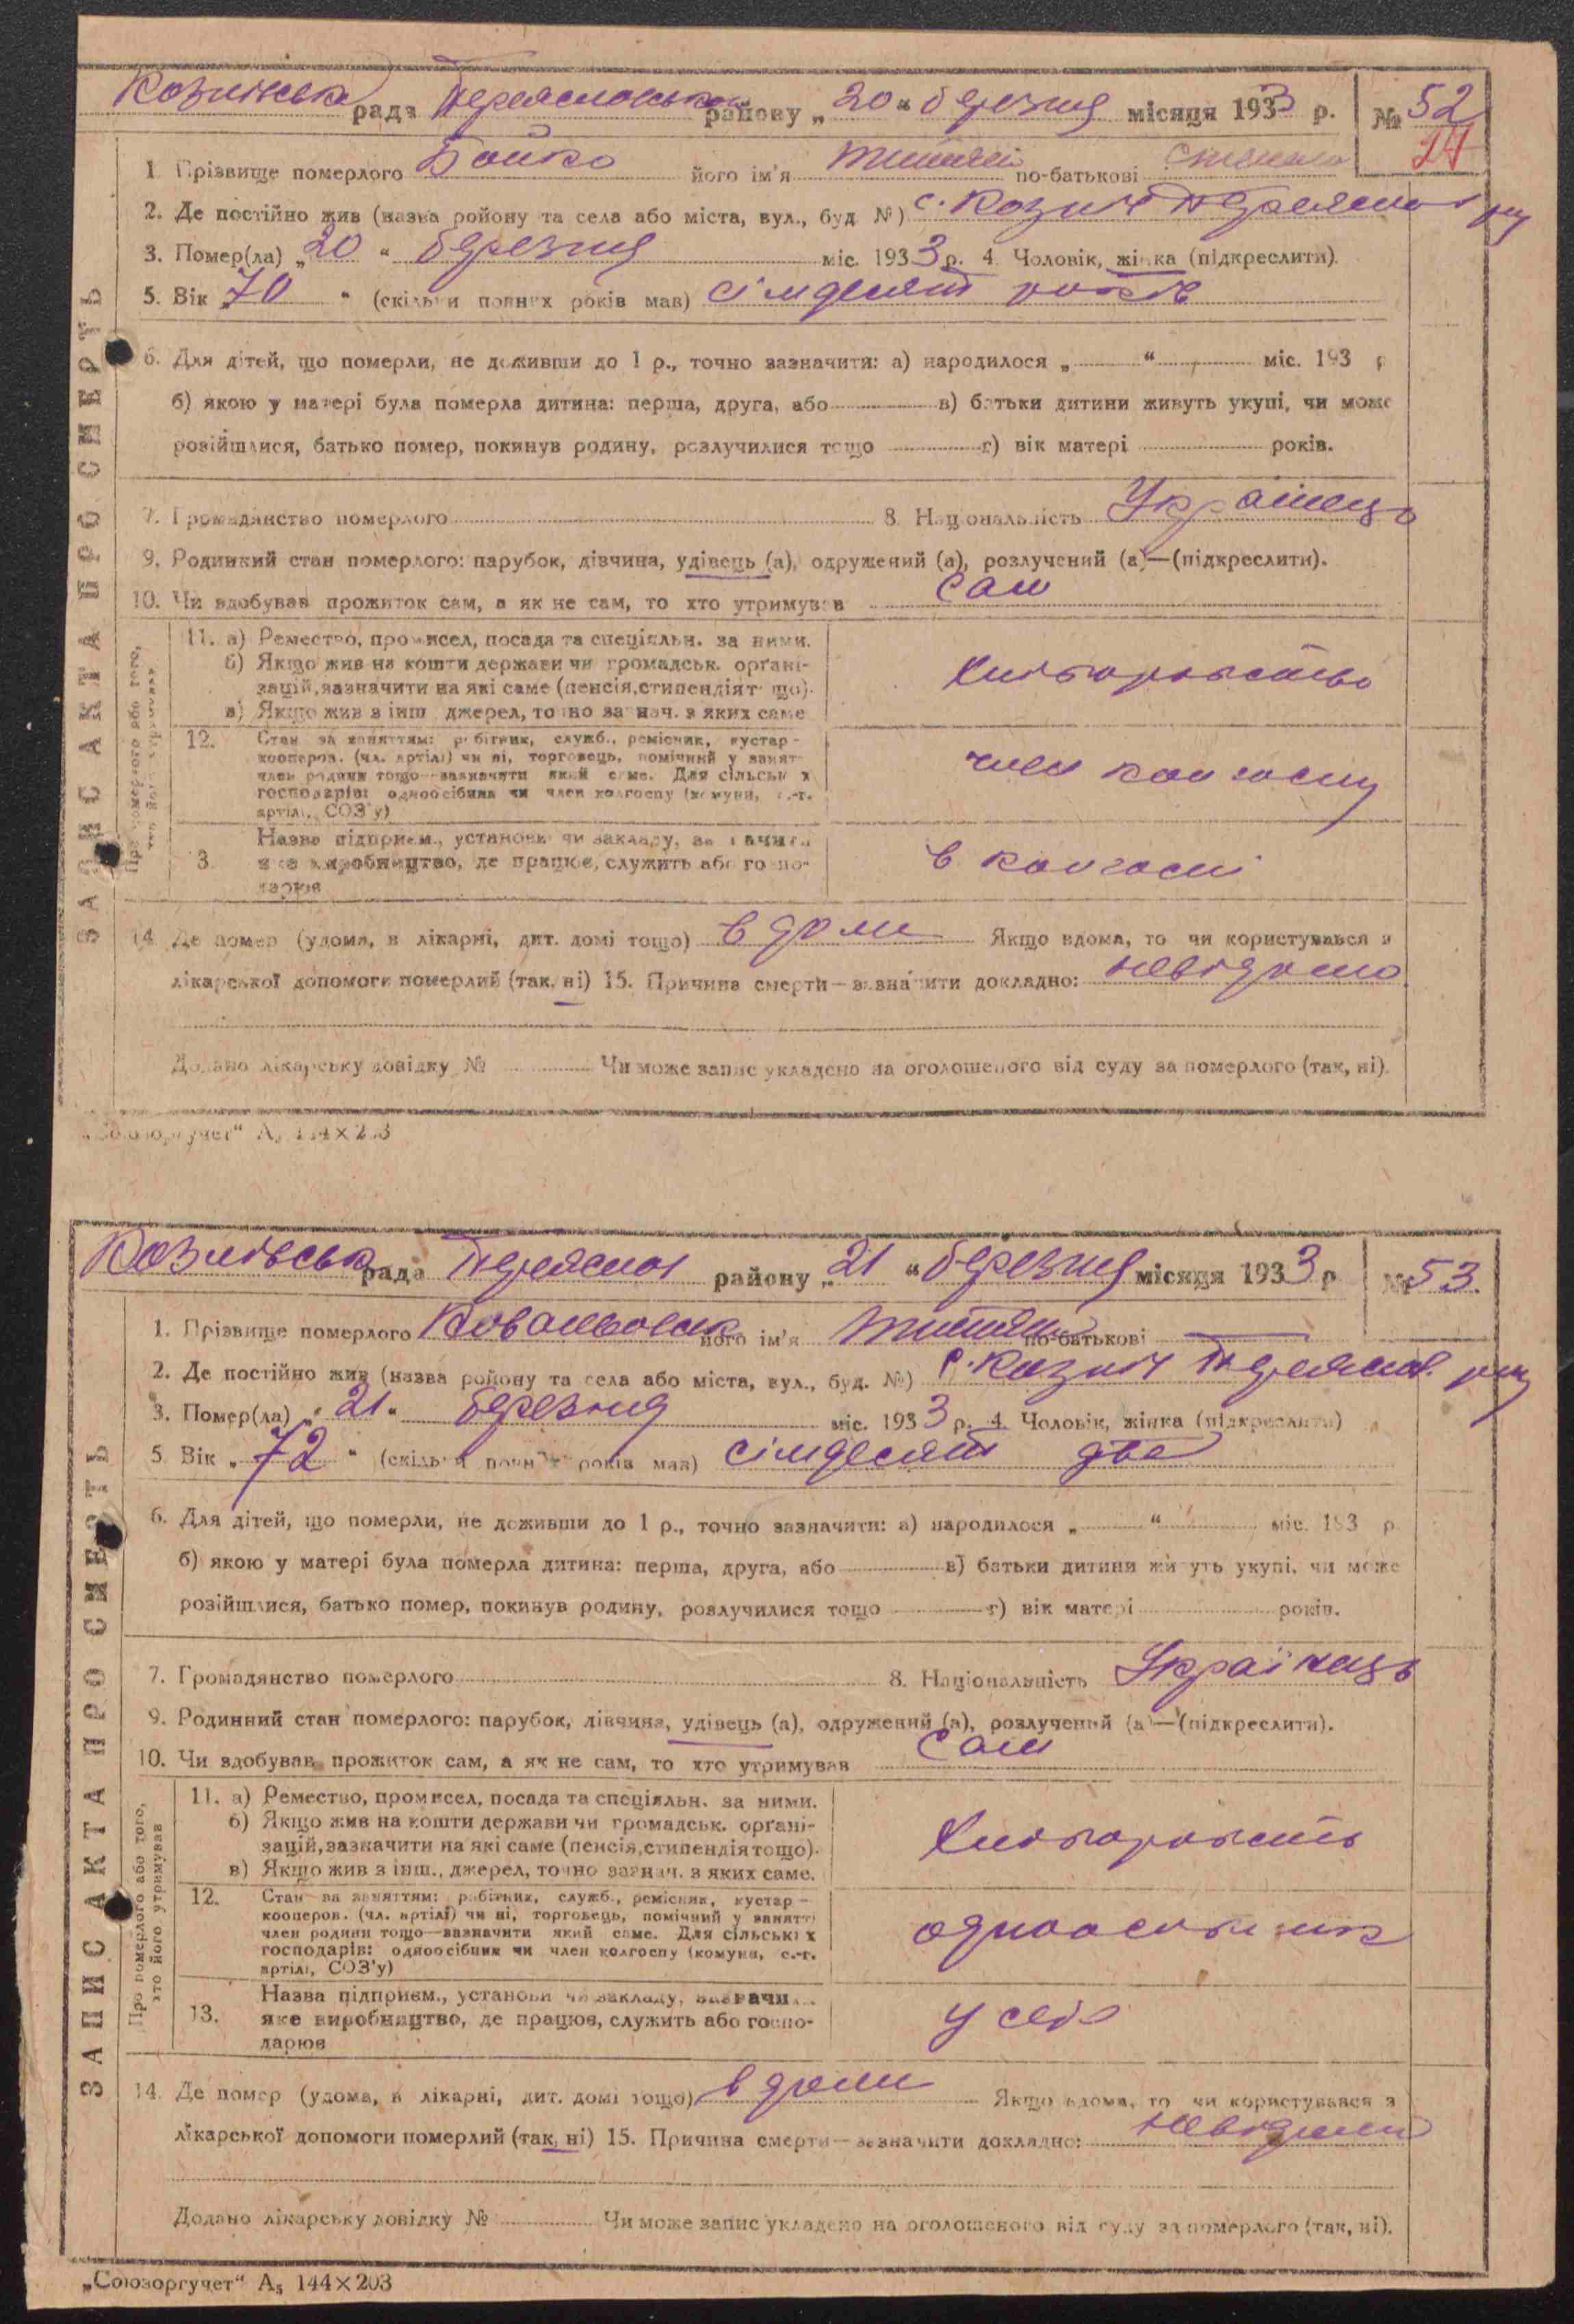 рада Переяславськ району „20“ березня місяця 1933 р. № 52
24
1 Прізвище померлого Бойко його ім'я по-батькові
2. Де постійно жив (назва району та села або міста, вул., буд №) с. Козинці Переяслав
3. Помер(ла) „20“ березня міс. 1933 р. 4. Чоловік, жінка (підкреслити).
5. Вік „70“ (скільки повних років мав) сімдесят років
6. Для дітей, що померли, не доживши до 1 р., точно зазначити: а) народилося „ “ міс. 193 р
б) якою у матері була померла дитина: перша, друга, або в) батьки дитини живуть укупі, чи може
розійшлися, батько помер, покинув родину, розлучилися тощо г) вік матері років.
7. Громадянство померлого 8. Національність Українець
9. Родинний стан померлого: парубок, дівчина, удівець (а), одружений (а), розлучений (а)—(підкреслити).
10. Чи здобував прожиток сам, а як не сам, то хто утримував сам
11. а) Ремество, промисел, посада та спеціяльн. за ними.
б) Якщо жив на кошти держави чи громадськ. орґані-
зацій, зазначити на які саме (пенсія, стипендія тощо).
в) Якщо жив з інш джерел, точно зазнач. з яких саме
Хліборобство
12. Стан за заняттям: робітник, служб., ремісник, кустар-
кооперов. (чл. артілі) чи ні, торговець, помічний у занят
член родини тощо—зазначити який саме. Для сільських
господарів: одноосібник чи член колгоспу (комуни, с.-г.
артілі, СОЗ'у)
член колгоспу
3. Назва підприєм., установи чи закладу, зазначити
яке виробництво, де працює, служить або госпо-
дарює
в колгоспі
14 Де помер (удома, в лікарні, дит. домі тощо) в доми Якщо вдома, то чи користувався з
лікарської допомоги померлий (так, ні) 15. Причина смерти—зазначити докладно: невідомо
Додано лікарську довідку № Чи може запис укладено на оголошеного від суду за померлого (так, ні).
ЗАПИС АКТА ПРО СМЕРТЬ
„Союзоргучет“ А5 144×203
рада Переяслав району „21“ березня місяця 1933 р № 53.
1. Прізвище померлого його ім'я по-батькові —
2. Де постійно жив (назва району та села або міста, вул., буд. №) с. Козинці Переяслав.
3. Помер(ла) „21“ березня міс. 1933 р. 4. Чоловік, жінка (підкреслити)
5 Вік „72“ (скільки повних років мав) сімдесят два
6. Для дітей, що померли, не доживши до 1 р., точно зазначити: а) народилося „ “ міс. 193 р
б) якою у матері була померла дитина: перша, друга, або в) батьки дитини живуть укупі, чи може
розійшлися, батько помер, покинув родину, розлучилися тощо г) вік матері років.
7. Громадянство померлого 8. Національність Українець
9. Родинний стан померлого: парубок, дівчина, удівець (а), одружений (а), розлучений (а)—(підкреслити).
10. Чи здобував прожиток сам, а як не сам, то хто утримував сам
11. а) Ремество, промисел, посада та спеціяльн. за ними.
б) Якщо жив на кошти держави чи громадськ. орґані-
зацій, зазначити на які саме (пенсія, стипендія тощо).
в) Якщо жив з інш., джерел, точно зазнач. з яких саме.
12. Стан за заняттям: робітник, служб., ремісник, кустар—
кооперов. (чл. артілі) чи ні, торговець, помічний у занятті
член родини тощо—зазначити який саме. Для сільських
господарів: одноосібник чи член колгоспу (комуни, с.-г.
артілі, СОЗ'у)
одноосібник
13. Назва підприєм., установи чи закладу, зазначити
яке виробництво, де працює, служить або госпо-
дарює
у себе
14. Де помер (удома, в лікарні, дит. домі тощо) в доми Якщо вдома, то чи користувався з
лікарської допомоги померлий (так, ні) 15. Причина смерти—зазначити докладно: невідомо
Додано лікарську довідку № Чи може запис укладено на оголошеного від суду за померлого (так, ні).
ЗАПИС АКТА ПРО СМЕРТЬ
Про померлого або того,
хто його утримував
„Союзоргучет“ А5 144×203